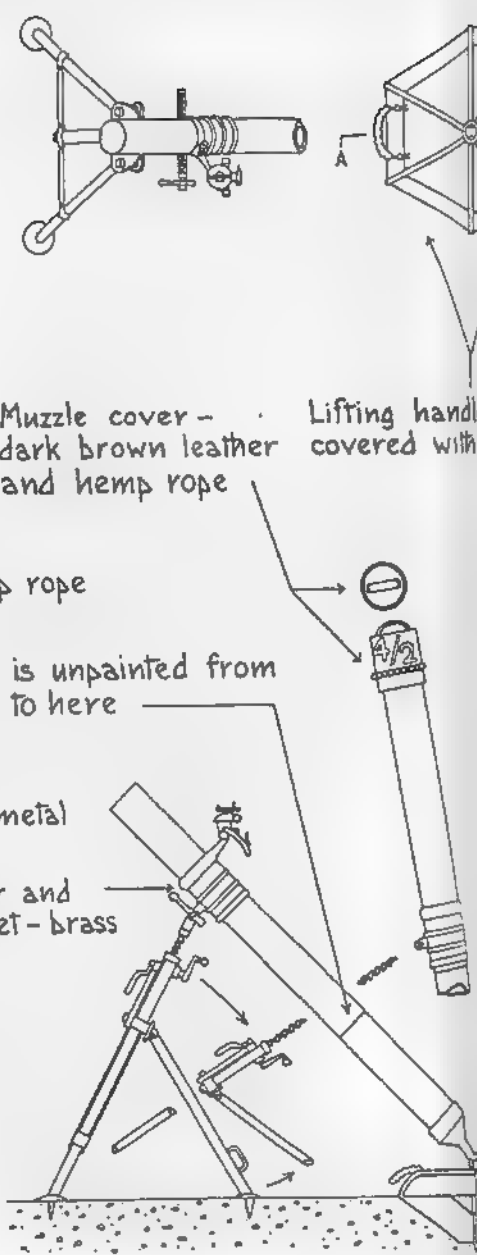 A
Muzzle cover –
dark brown leather
and hemp rope
Lifting handl
covered with
p rope
4/2
is unpainted from
to here
metal
r and
et – brass